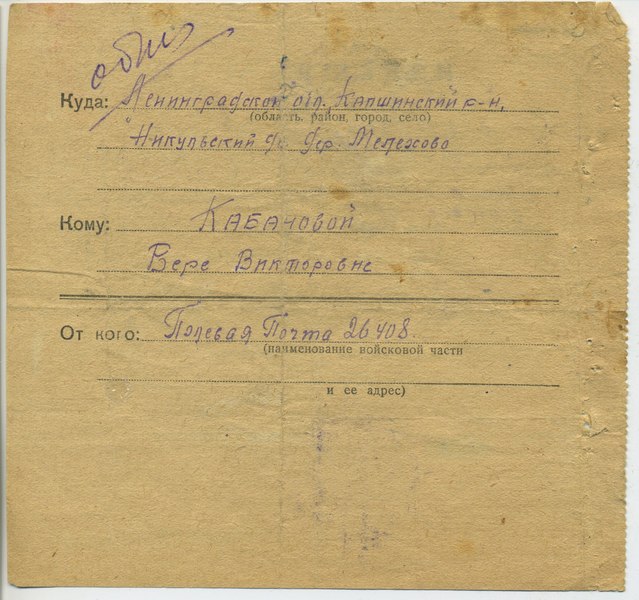 Куда: Ленинградской обл. Капшинский р-н,
(область, район, город, село)
Никульский дер. Мележово
Кому: Кабачовой
Вере Викторовне
От кого: Полевая Почта 26408
(наименование войсковой части
и ее адрес)